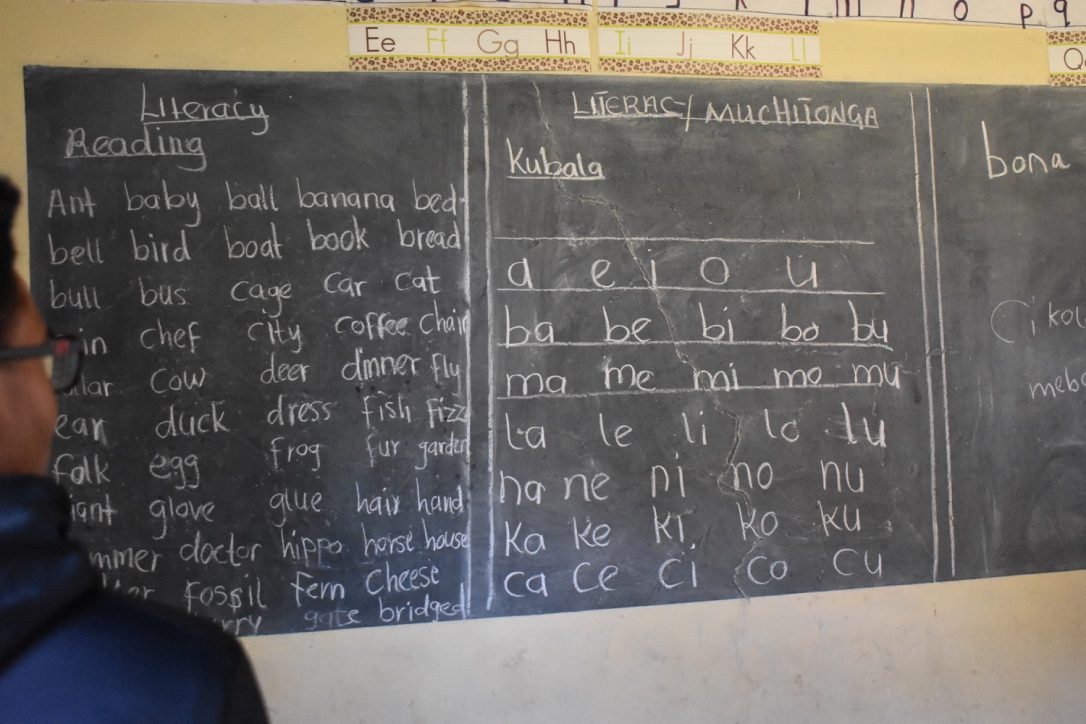 o p q
Ee Ff Gg Hh Ii Jj Kk Ll
Literacy
Reading
Ant baby ball banana bed
bell bird boat book bread
bull bus cage car cat
chef city coffee chair
cow deer dinner fly
duck dress fish fizz
folk egg frog fur garden
glove glue hair hand
doctor hippo horse house
fossil fern cheese
gate bridged
LITERACY MUCHITONGA
Kubala
a e i o u
ba be bi bo bu
ma me mi mo mu
la le li lo lu
na ne ni no nu
Ka ke ki ko ku
ca ce ci co cu
bona